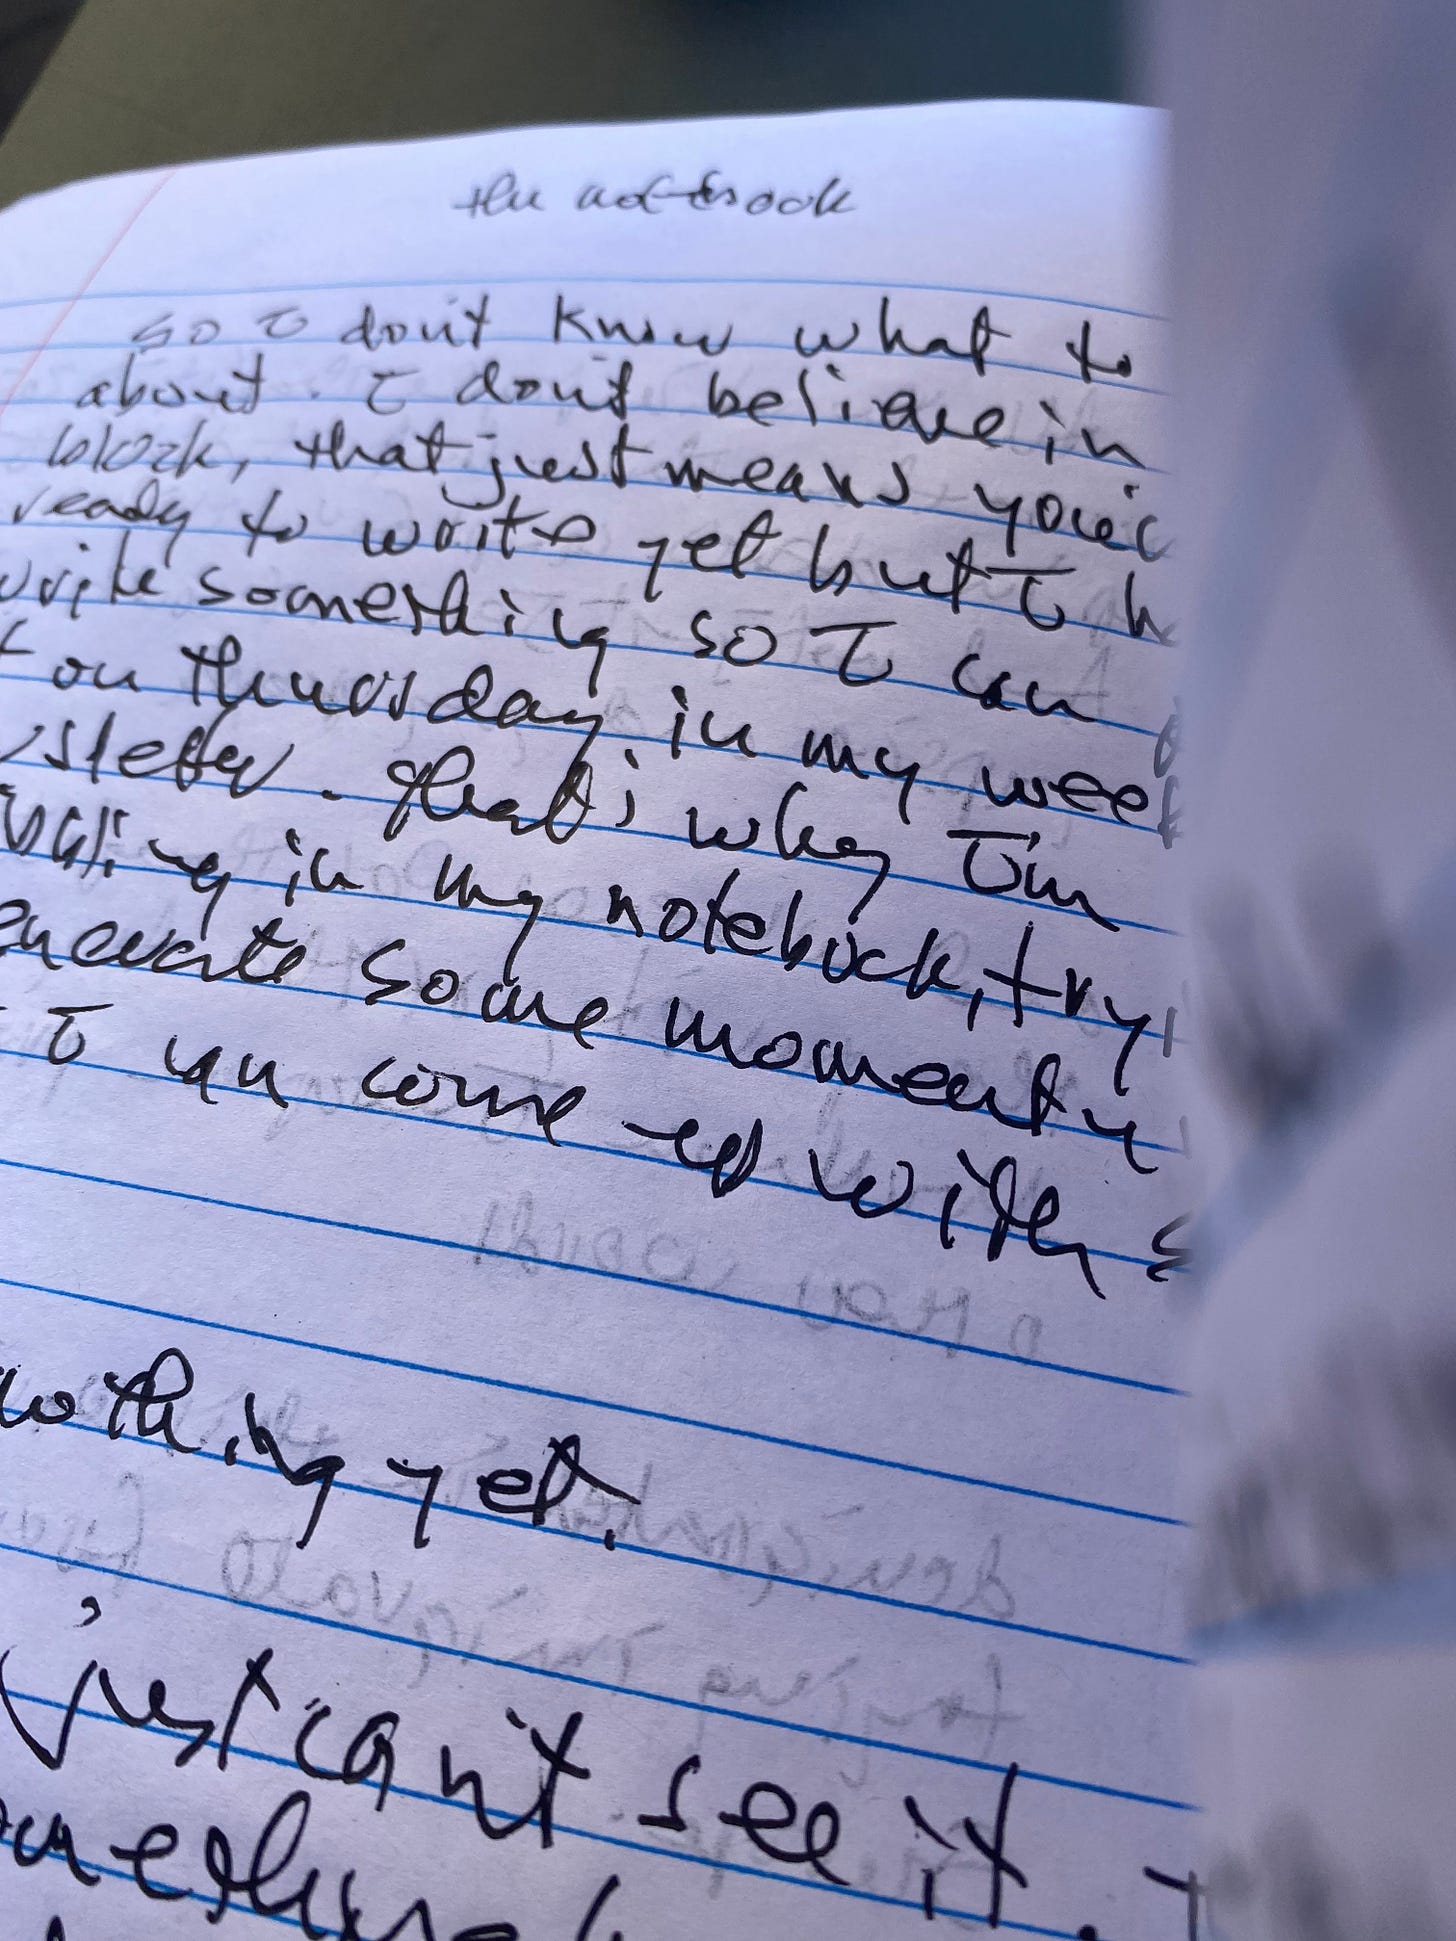 the notebook
so I don't know what to
about. I don't believe in
block, that just means you'r
ready to write yet but I h
write something so I can
on Thursday, in my week
sletter. that's why I'm
in my notebook, try
enerate some momentu
I can come up with s
nothing yet.
just can't see it.